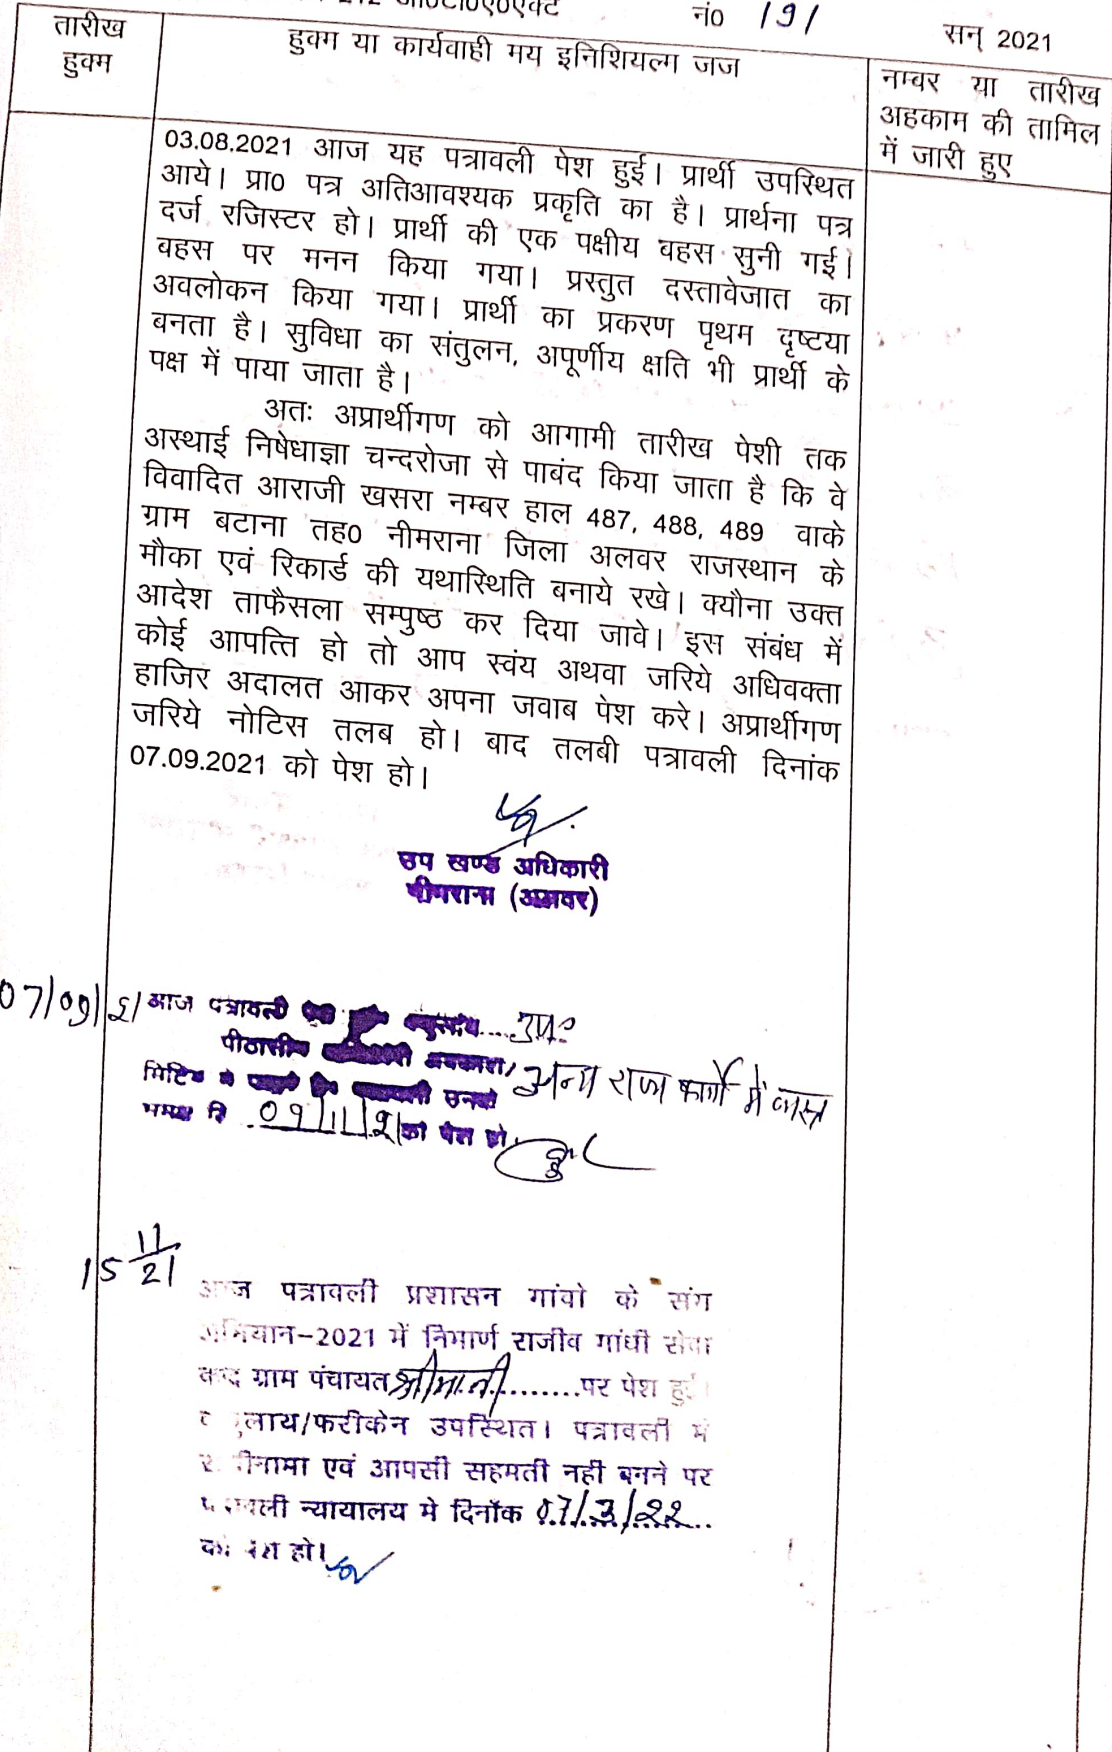 212 आ०टी०ए०एक्ट नं० 191 सन् 2021
तारीख हुक्म
हुक्म या कार्यवाही मय इनिशियल्म जज
नम्बर या तारीख
अहकाम की तामिल
में जारी हुए
03.08.2021 आज यह पत्रावली पेश हुई। प्रार्थी उपस्थित
आये। प्रा0 पत्र अतिआवश्यक प्रकृति का है। प्रार्थना पत्र
दर्ज रजिस्टर हो। प्रार्थी की एक पक्षीय बहस सुनी गई।
बहस पर मनन किया गया। प्रस्तुत दस्तावेजात का
अवलोकन किया गया। प्रार्थी का प्रकरण पृथम दृष्टया
बनता है। सुविधा का संतुलन, अपूर्णीय क्षति भी प्रार्थी के
पक्ष में पाया जाता है।
अतः अप्रार्थीगण को आगामी तारीख पेशी तक
अस्थाई निषेधाज्ञा चन्दरोजा से पाबंद किया जाता है कि वे
विवादित आराजी खसरा नम्बर हाल 487, 488, 489 वाके
ग्राम बटाना तह0 नीमराना जिला अलवर राजस्थान के
मौका एवं रिकार्ड की यथास्थिति बनाये रखे। क्यौना उक्त
आदेश ताफैसला सम्पुष्ठ कर दिया जावे। इस संबंध में
कोई आपत्ति हो तो आप स्वंय अथवा जरिये अधिवक्ता
हाजिर अदालत आकर अपना जवाब पेश करे। अप्रार्थीगण
जरिये नोटिस तलब हो। बाद तलबी पत्रावली दिनांक
07.09.2021 को पेश हो।
उप खण्ड अधिकारी
नीमराना (अलवर)
07/09/21 आज पत्रावली उप०
पीठासीन अवकाश/ अन्य राज कार्यो में व्यस्त
मिटिंग उनके
समक्ष दि 09/11/21 को पेश हो
15 11/21
आज पत्रावली प्रशासन गांवो के संग
अभियान-2021 में निमार्ण राजीव गांधी सेवा
केन्द्र ग्राम पंचायत ........पर पेश हुई।
वकुलाय/फरीकेन उपस्थित। पत्रावली में
राजीनामा एवं आपसी सहमती नही बनने पर
पत्रावली न्यायालय मे दिनॉक 07/3/22
को पेश हो।